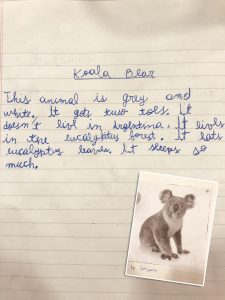 Koala Bear
This animal is grey and
white. It gots two toes. It
doesn't live in Argentina. It lives
in the eucalyptus forest. It eats
eucalyptus leaves. It sleeps so
much.
by